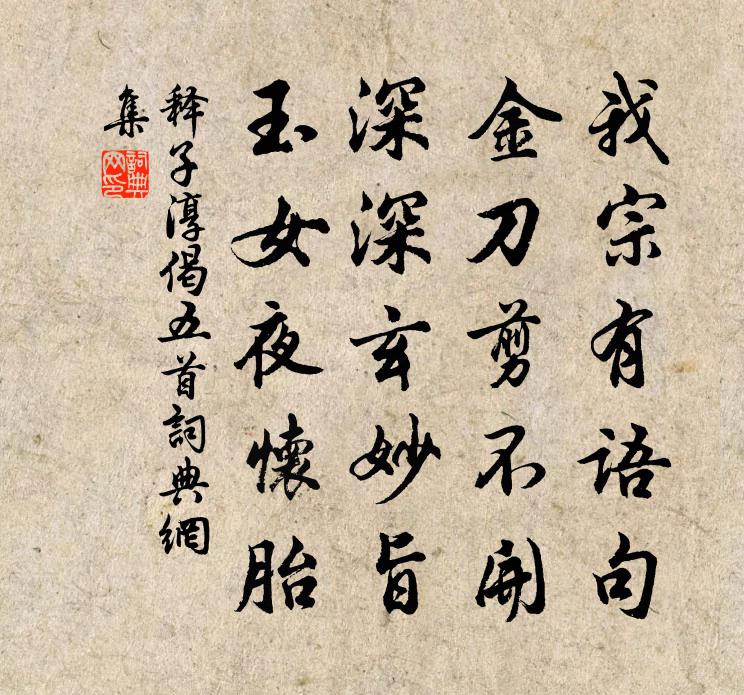 我宗有语句
金刀剪不开
深深玄妙旨
玉女夜懷胎
释子淳偈五首詞典網
集
詞典
网印